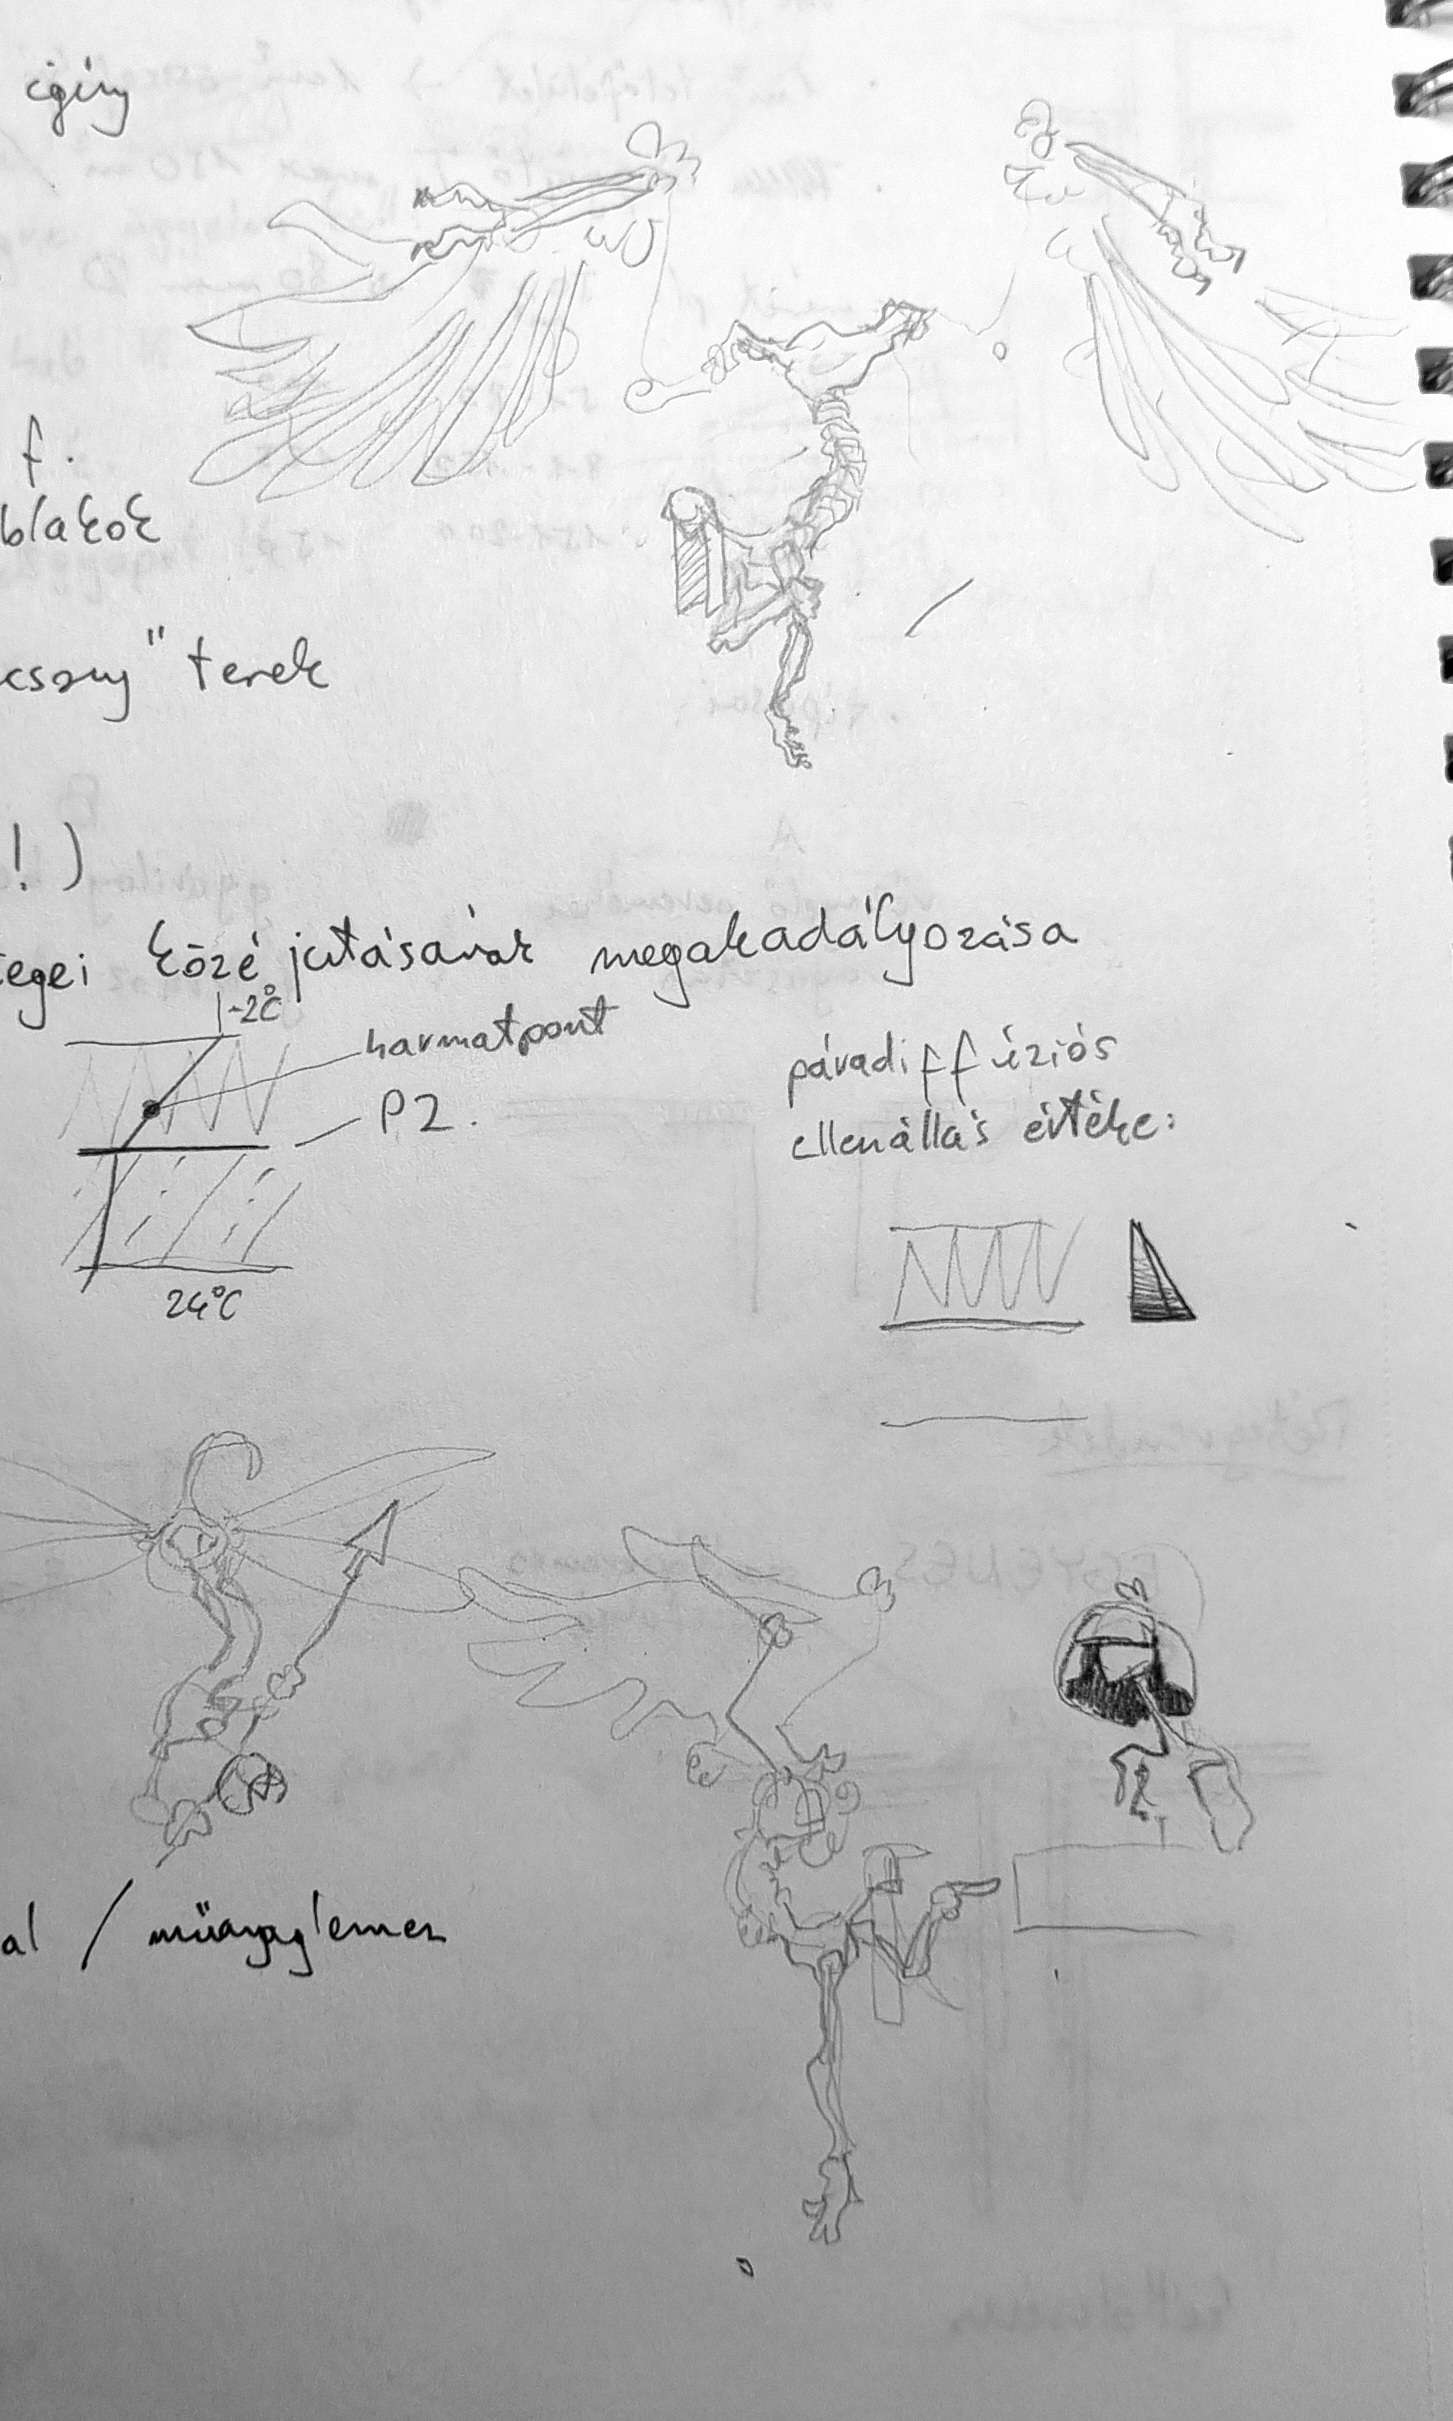 igény
f.
blakok
csony" terek
!)
egei közé jutásának megakadályozása
-2°C
harmatpont
PZ.
24°C
páradiffúziós
ellenállás értéke:
al / műanyaglemez